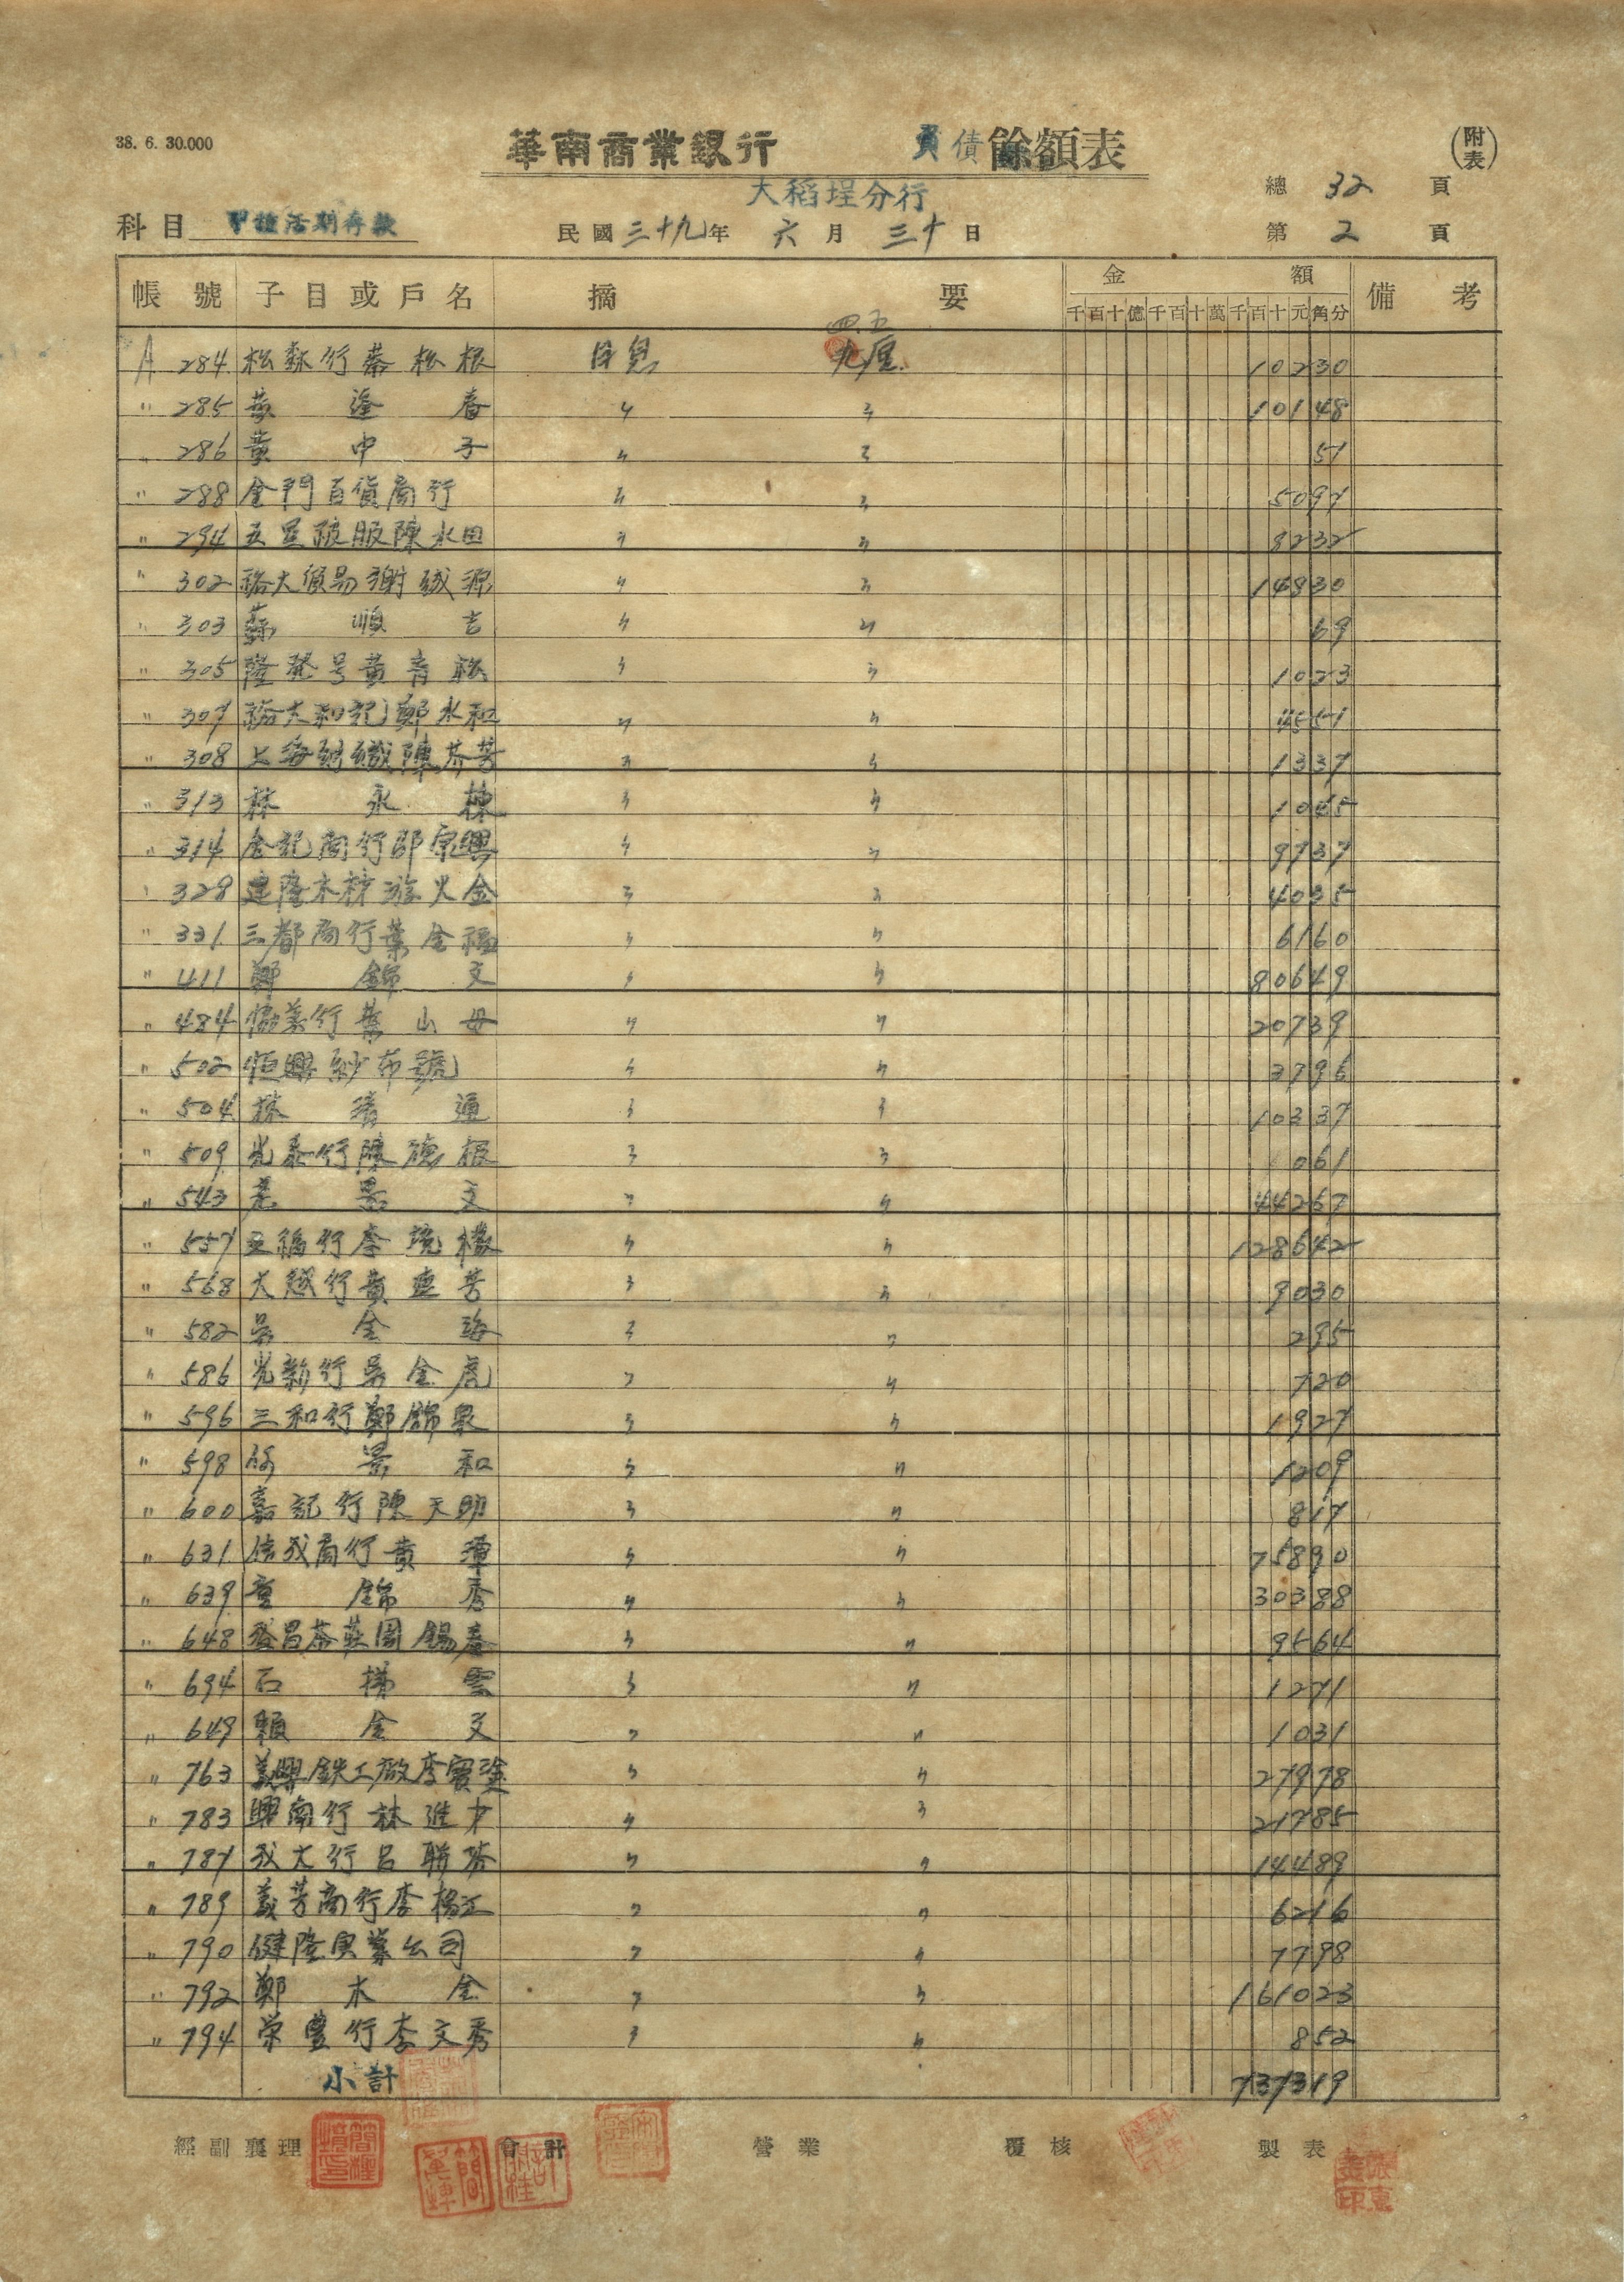 38. 6. 30.000
華南商業銀行 負債餘額表 (附表)
大稻埕分行
總 32 頁
科目 甲種活期存款 民國三十九年 六月 三十日 第 2 頁
帳號 子目或戶名 摘要 金額 備考
千百十億千百十萬千百十元角分
四.五
A 284 松森行蔡松根 日息 九厘 10230
〃 285 黃逢春 〃 〃 10148
〃 286 黃中子 〃 〃 51
〃 288 金門百貨商行 〃 〃 5097
〃 294 五星被服陳水田 〃 〃 8232
〃 302 裕大貿易謝誠源 〃 〃 14830
〃 303 蘇順吉 〃 〃 69
〃 305 隆発号黃青松 〃 〃 1023
〃 307 裕大和記鄭水和 〃 〃 4551
〃 308 上海紡織陳芥芳 〃 〃 1337
〃 313 林永棟 〃 〃 1045
〃 314 金記商行邵宗興 〃 〃 9737
〃 329 建隆木材游火金 〃 〃 4035
〃 331 三都商行葉金福 〃 〃 6160
〃 411 鄭錦文 〃 〃 80649
〃 484 協美行葉山母 〃 〃 20739
〃 502 恒興紗布號 〃 〃 3796
〃 504 林清通 〃 〃 10337
〃 509 光泰行陳德根 〃 〃 061
〃 543 文 〃 〃 44267
〃 557 五福行李 〃 〃 128642
〃 568 大越行黃連芳 〃 〃 9030
〃 582 吳金海 〃 〃 295
〃 586 光新行吳金虎 〃 〃 720
〃 596 三和行鄭錦泉 〃 〃 1927
〃 598 景和 〃 〃 1209
〃 600 嘉記行陳天助 〃 〃 817
〃 631 信成商行黃潭 〃 〃 75890
〃 639 童錦秀 〃 〃 30388
〃 648 發昌茶莊周錫春 〃 〃 9564
〃 694 石梯雲 〃 〃 1271
〃 649 賴金文 〃 〃 1031
〃 763 義興鉄工廠李寶塗 〃 〃 27978
〃 783 興南行林進才 〃 〃 21785
〃 787 成大行呂聯 〃 〃 14489
〃 789 義芳商行李楊江 〃 〃 6216
〃 790 健隆実業公司 〃 〃 7798
〃 792 鄭木金 〃 〃 161023
〃 794 榮豊行李文秀 〃 〃 852
小計 737319
經副襄理 會計 營業 覆核 製表